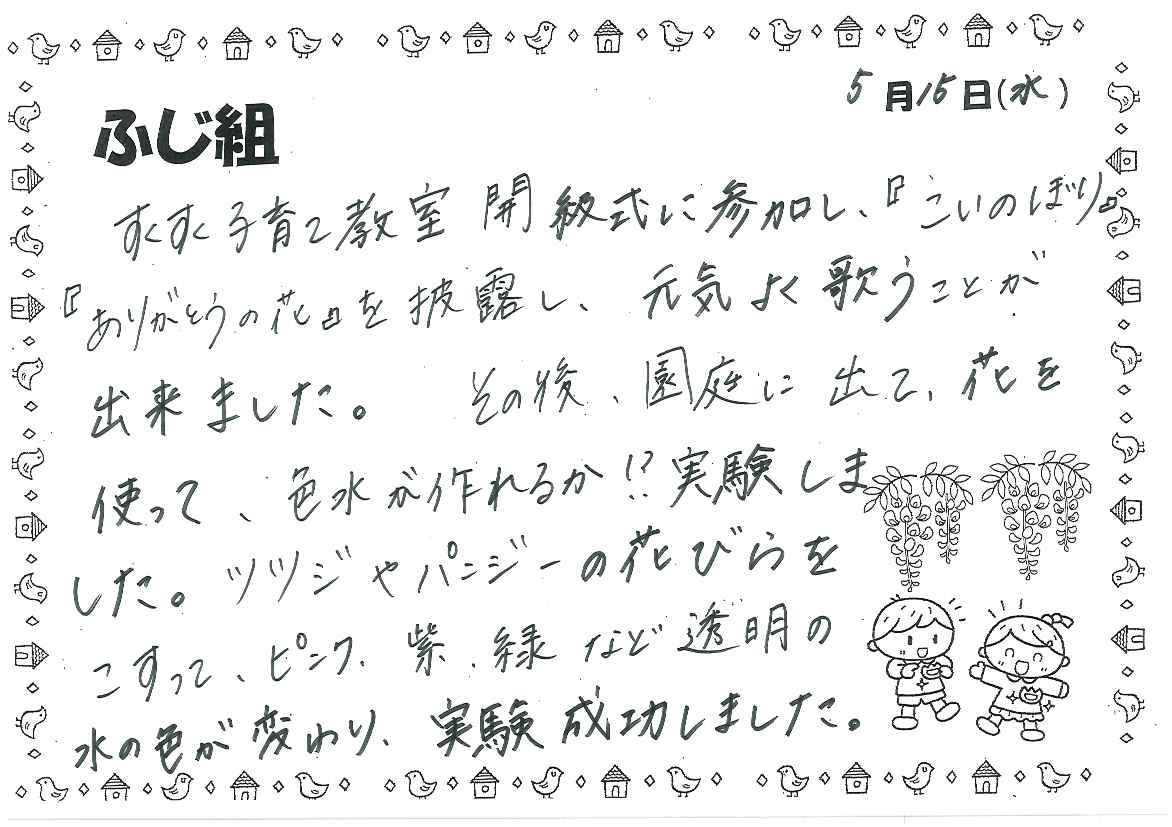 5月15日(水)
ふじ組
すくすく子育て教室 開級式に参加し、『こいのぼり』
『ありがとうの花』を披露し、元気よく歌うことが
出来ました。 その後、園庭に出て、花を
使って、色水が作れるか!?実験しま
した。ツツジやパンジーの花びらを
こすって、ピンク、紫、緑など透明の
水の色が変わり、実験成功しました。